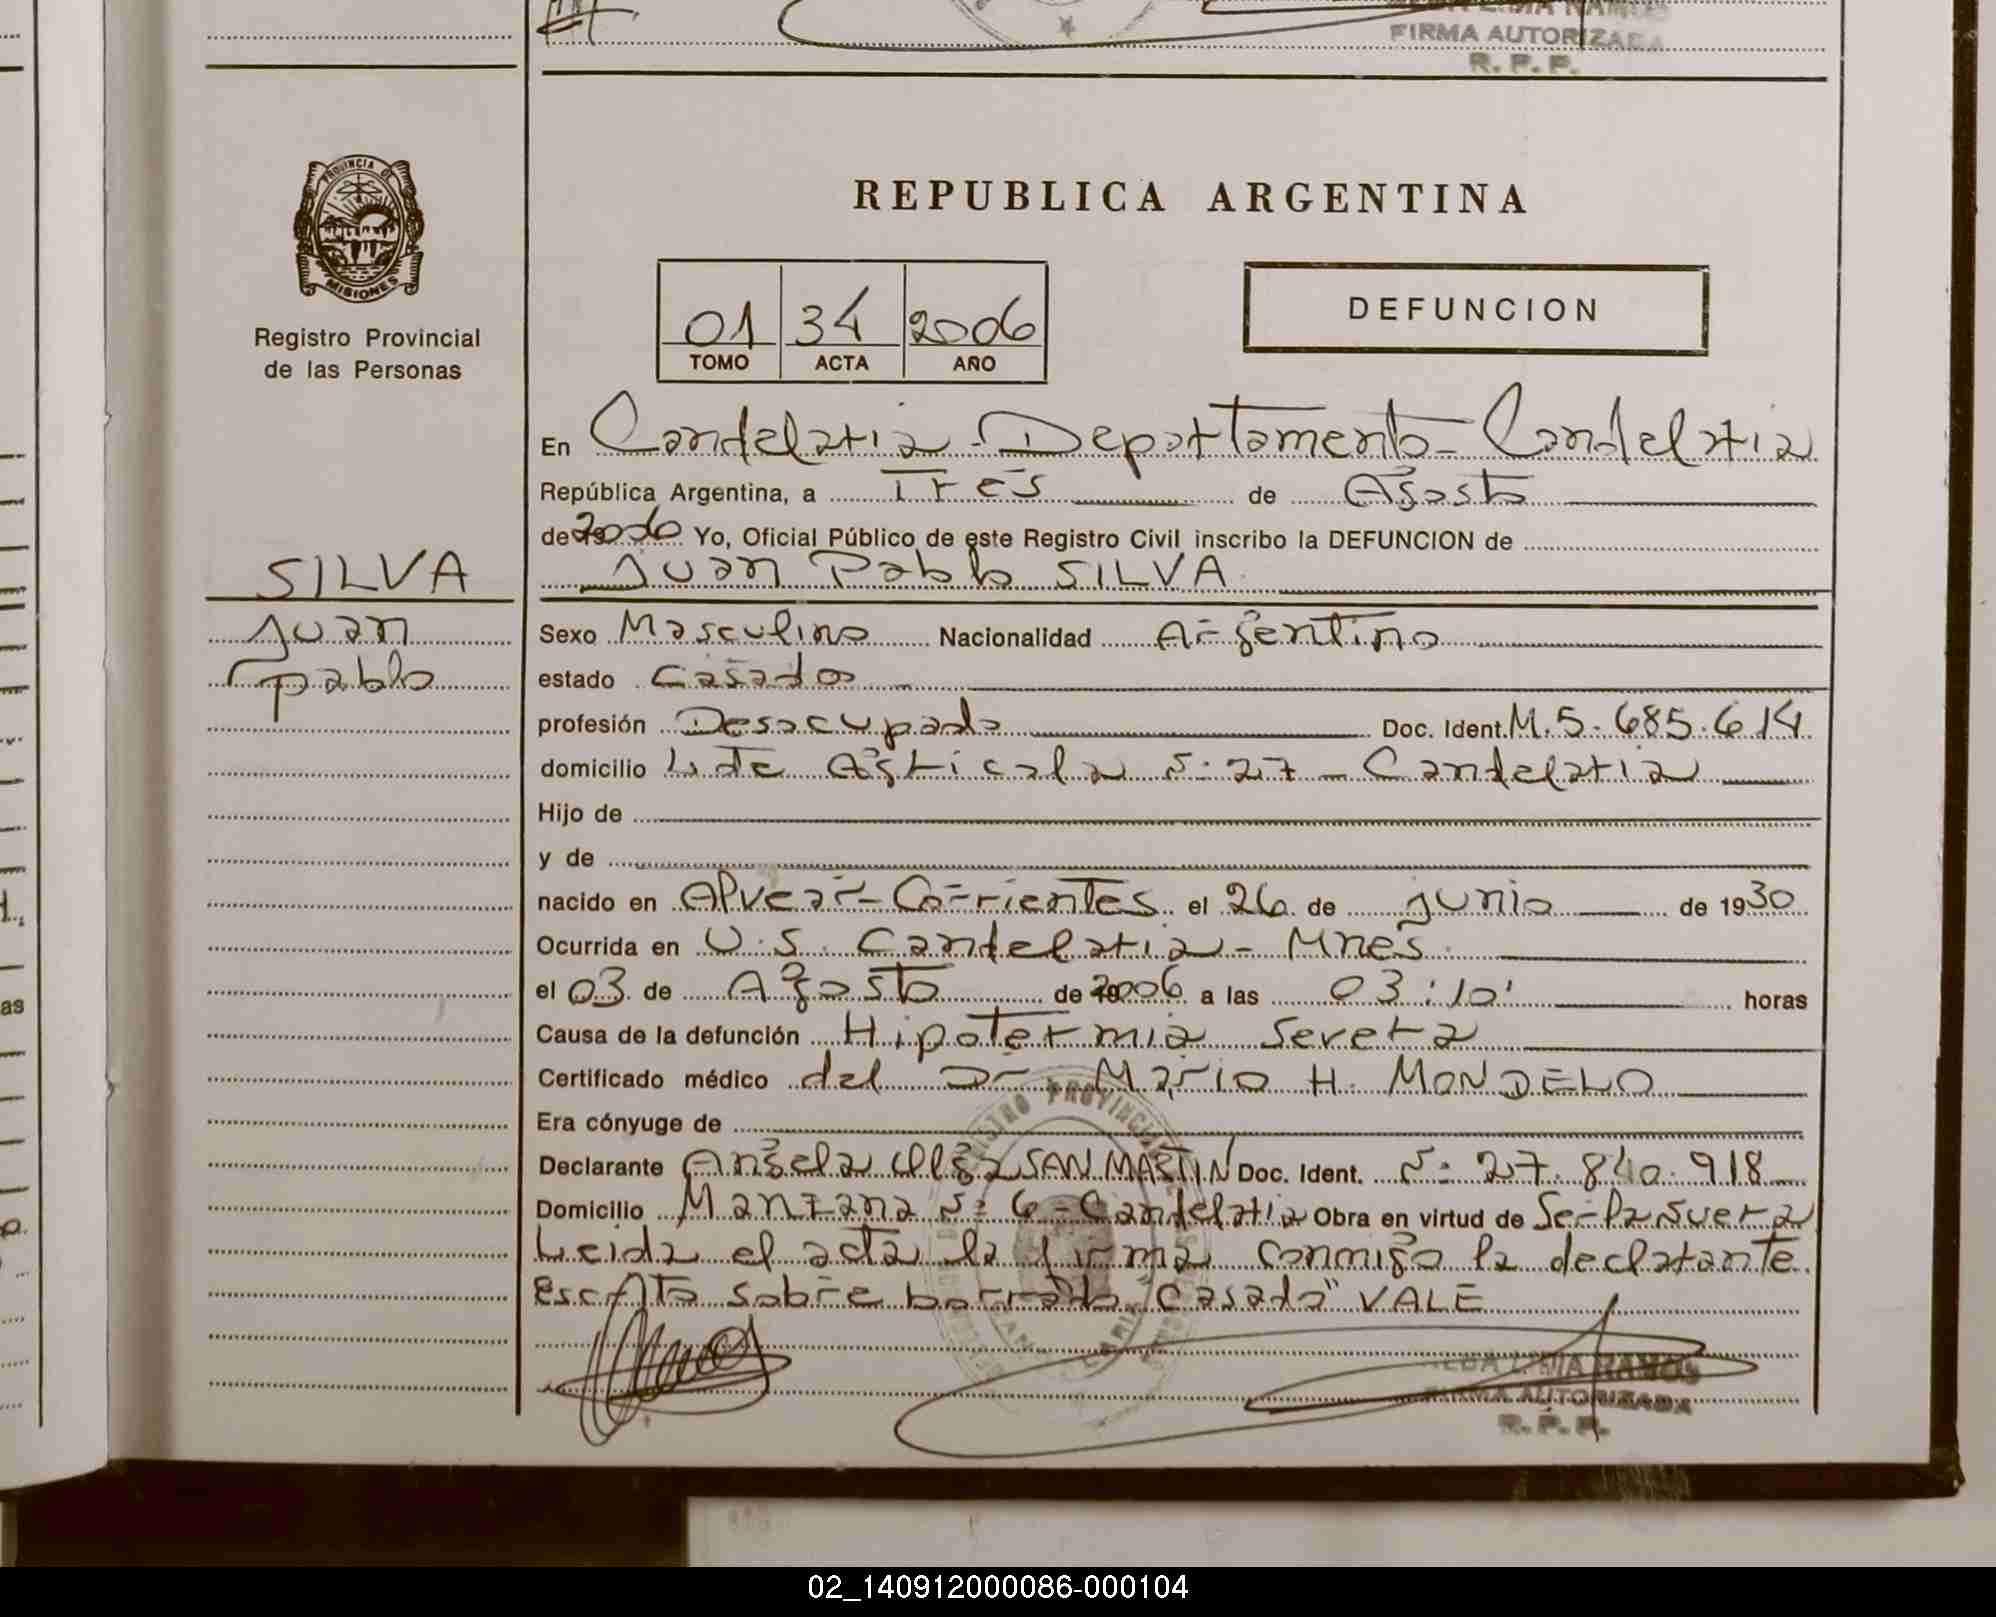 FIRMA AUTORIZADA
R. P. P.
PROVINCIA DE
MISIONES
Registro Provincial
de las Personas
REPUBLICA ARGENTINA
01 34 2006
TOMO ACTA AÑO
DEFUNCION
En Candelaria - Departamento - Candelaria
República Argentina, a Tres de Agosto
de 2006 Yo, Oficial Público de este Registro Civil inscribo la DEFUNCION de
Juan Pablo SILVA
SILVA
Juan
Pablo
Sexo Masculino Nacionalidad Argentino
estado Casado
profesión Desocupado Doc. Ident. M. 5.685.614
domicilio Lte Agricola Nº 27 - Candelaria
Hijo de
y de
nacido en Alvear - Corrientes el 26 de junio de 1930
Ocurrida en U.S. Candelaria - Mnes.
el 03 de Agosto de 2006 a las 03:10' horas
Causa de la defunción Hipotermia Severa
Certificado médico del Dr Mario H. MONDELO
Era cónyuge de
Declarante Angela Olga SAN MARTIN Doc. Ident. Nº 27.840.918
Domicilio Manzana Nº 6 - Candelaria Obra en virtud de Ser la Suera
Leida el acta la firma conmigo la declarante.
Escrito sobre borrado "Casado" VALE
LIDIA RAMOS
FIRMA AUTORIZADA
R. P. P.
02_140912000086-000104